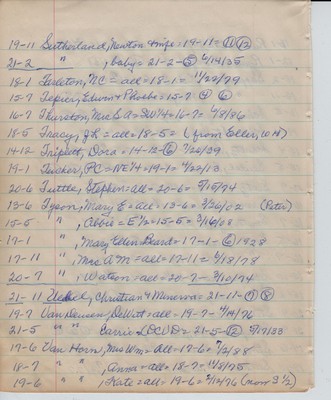 19-11 Sutherland, Newton & wife = 19-11 = ⑪ ⑫
21-2 " , baby = 21-2-⑤ 6/14/35
18-1 Tarleton, NC = all = 18-1 = 11/22/79
15-7 Tepier, Edwin & Phoebe = 15-7 ④ ⑥
16-7 Thurston, Mrs S.A = SW¼ = 16-7 = 4/8/86
18-5 Tracy, J.R = all = 18-5 = (from Eller, W H)
14-12 Triplett, Dora = 14-12-⑥ 7/20/29
19-1 Tucker, PC = NE¼ = 19-1 = 4/22/13
20-6 Tuttle, Stephen = all = 20-6 = 5/15/94
13-6 Tyson, Mary E = all = 13-6 = 3/26/02 (Peter)
15-5 " , Abbie = E½ = 15-5 = 3/16/08
17-1 " , Mary Ellen = 17-1-⑥ 1928
17-11 " , Mrs A.M = all = 17-11 = 9/18/78
20-7 " , Watson = all = 20-7 - 3/10/94
21-11 Christian & Minerva = 21-11 - ⑦ ⑧
19-7 Van Deusen, DeWitt = all = 19-7 = 11/14/76
21-5 " " Carrie = 21-5-⑫ 5/17/33
17-6 Van Horn, Mrs Wm = all = 17-6 = 7/2/88
18-7 " " , Anna = all = 18-7 = 11/8/75
19-6 " " , Kate = all = 19-6 = 2/12/76 (now 3½)